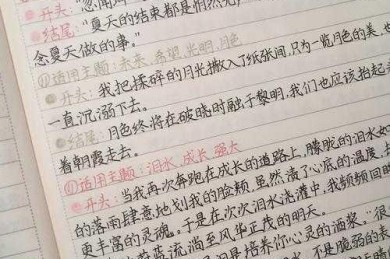 开头:"忽闻
结尾:"夏天的结束都是悄然无
念夏天做的事。"
①适用主题:未来,希望,光明,月色
开头:我把揉碎的月光撒入了纸张间,只为一览月色的美,也
一直沉溺下去。
结尾:月色终将在破晓时融于黎明,我们也应该抬起
着朝霞走去。
①适用主题:泪水,成长,强大
开头:当我再次奔跑在成长的道路上,朦胧的泪水
的落雨肆意地划我的脸颊,虽然滴了心底的温度,
更丰富的灵魂。于是在次次泪水浇灌中,我频频回
蓝流淌至风华正茂的明天。
是培养你心灵的酒浆。"很
不是脆弱的表